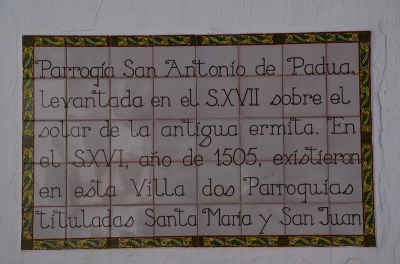 Parrogía San Antonio de Padua.
levantada en el S.XVII sobre el
solar de la antigua ermita. En
el S.XVI, año de 1505, existieron
en esta Villa dos Parroquias
tituladas Santa María y San Juan